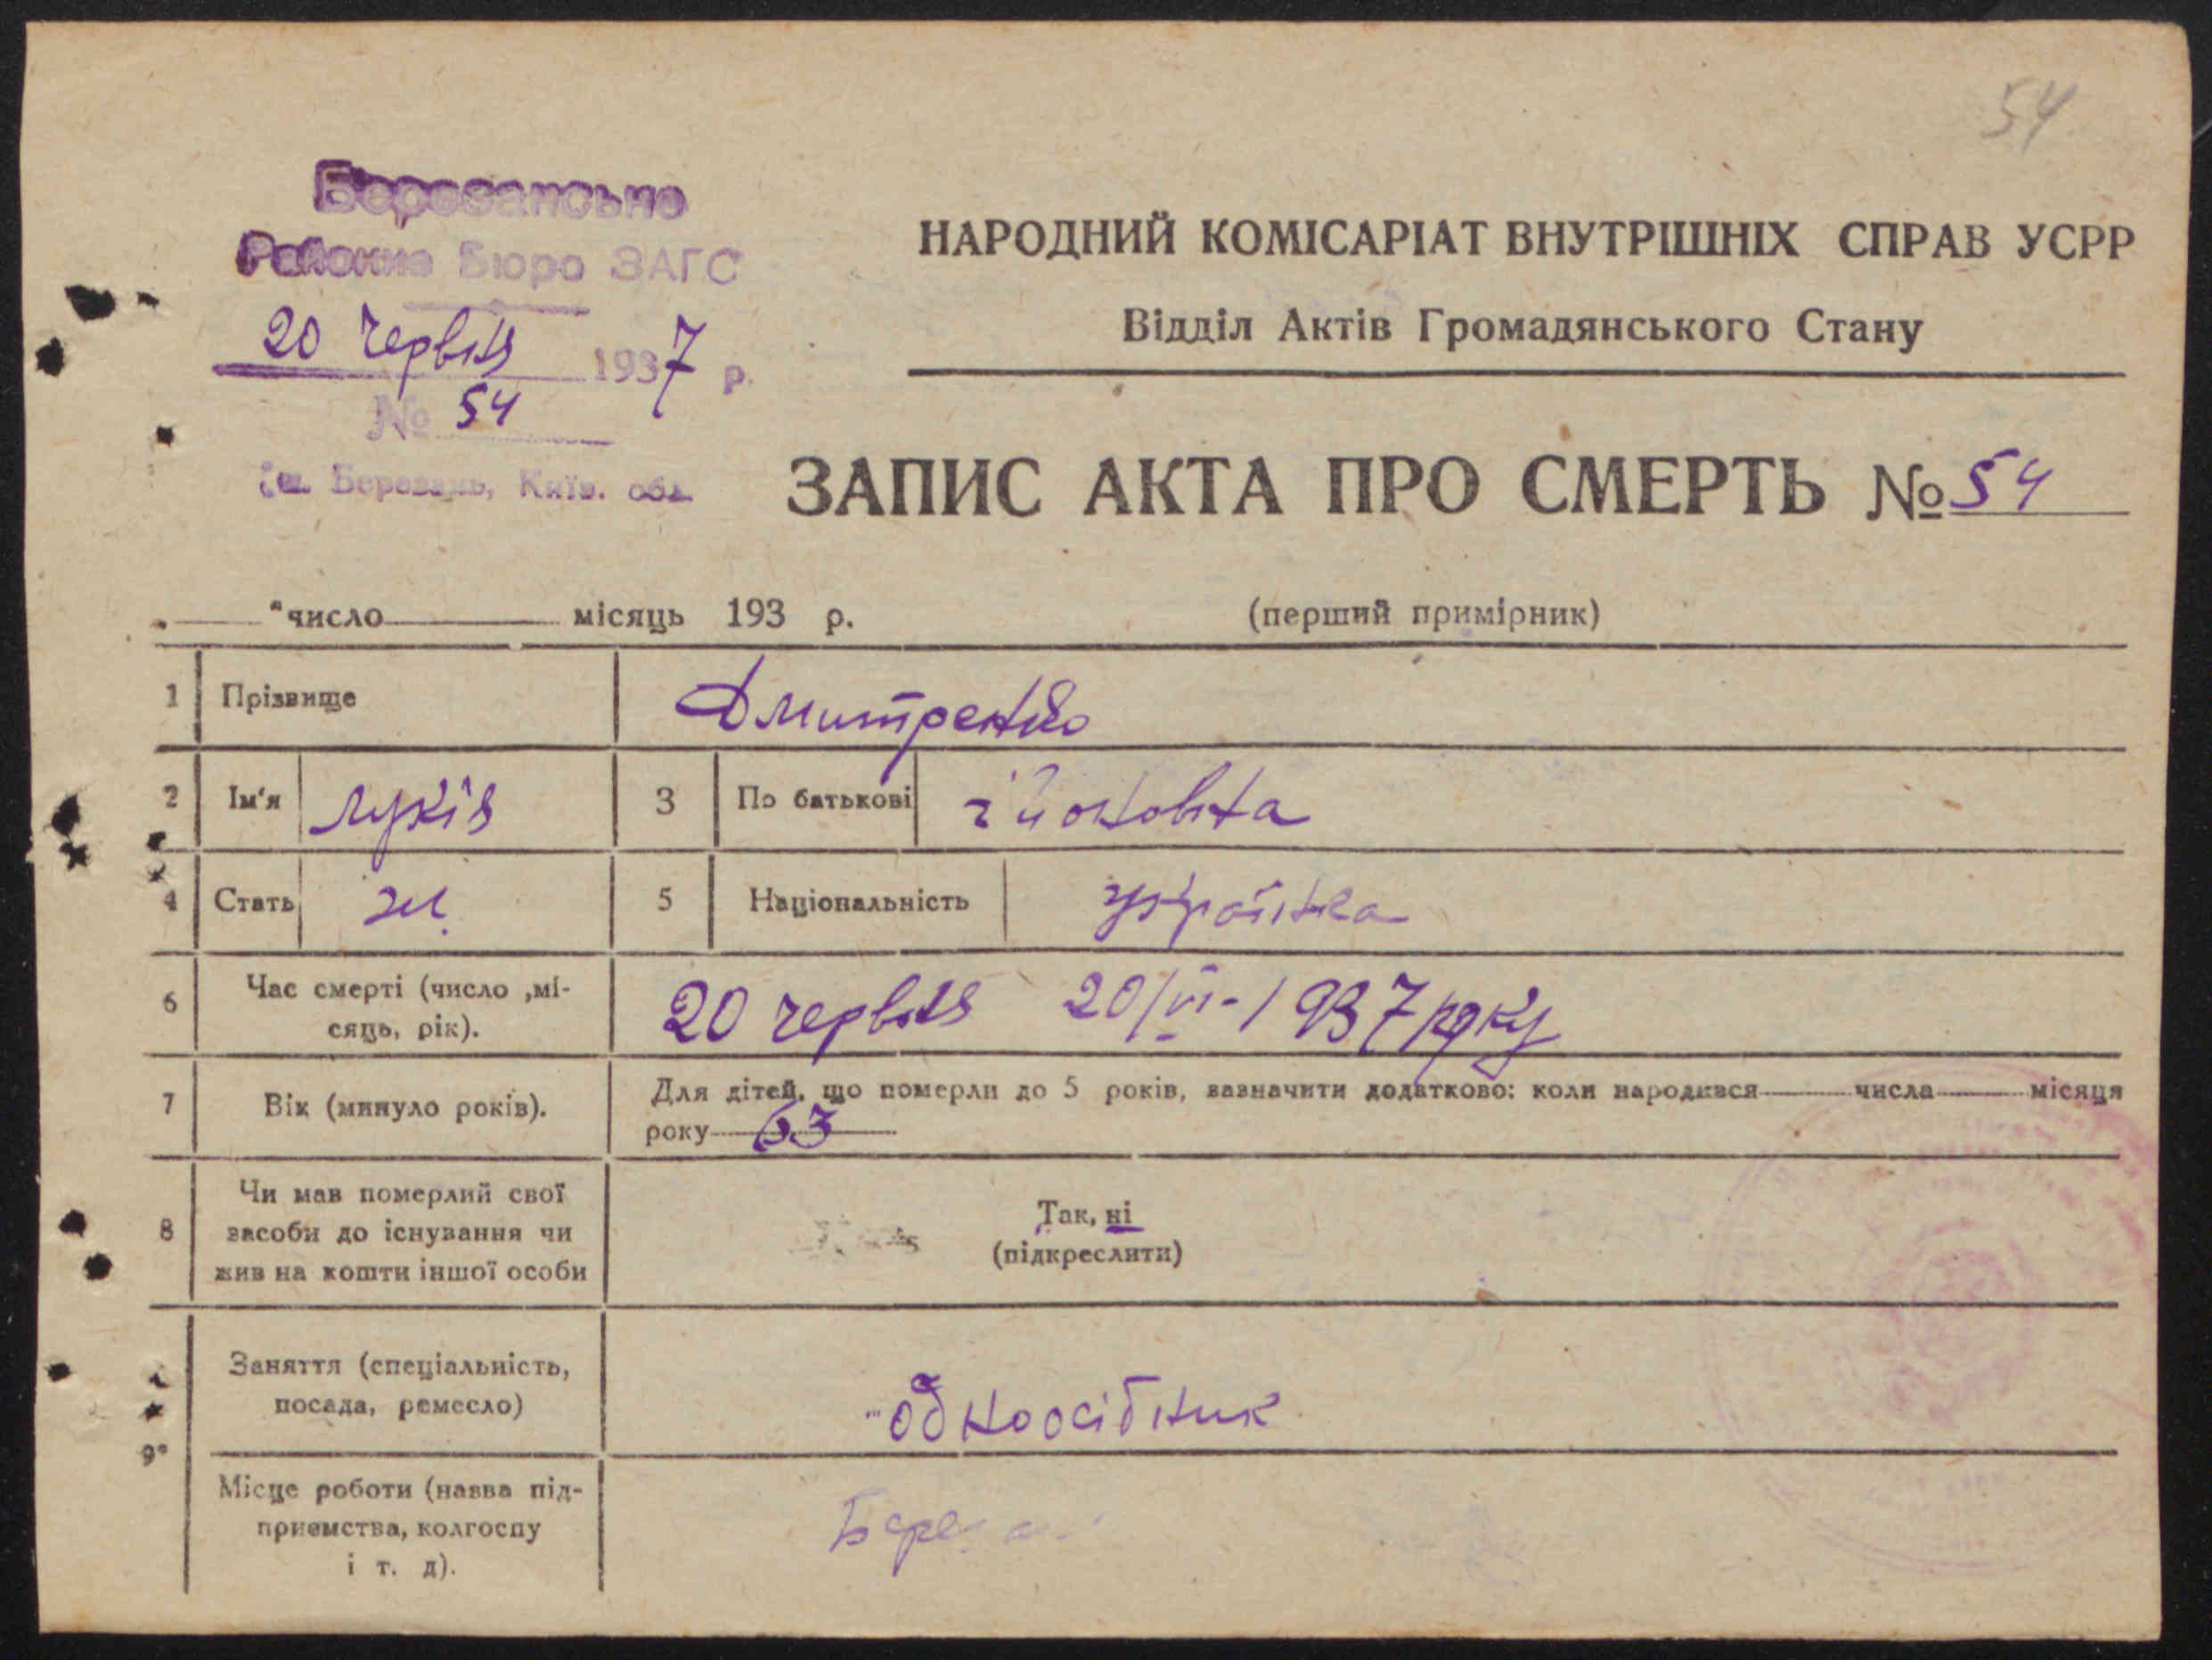 54
Березанське
Районне Бюро ЗАГС
20 червня 1937 р.
№ 54
ст. Березань, Київ. обл.
НАРОДНИЙ КОМІСАРІАТ ВНУТРІШНІХ СПРАВ УСРР
Відділ Актів Громадянського Стану
ЗАПИС АКТА ПРО СМЕРТЬ № 54
"число місяць 193 р. (перший примірник)
1 Прізвище Дмитренко
2 Ім'я лукія 3 По батькові
4 Стать ж. 5 Національність українка
6 Час смерті (число ,мі-
сяць, рік).
20 червня 20/VI-1937 року
7 Вік (минуло років).
Для дітей, що померли до 5 років, зазначити додатково: коли народився числа місяця
року 63
8 Чи мав померлий свої
засоби до існування чи
жив на кошти іншої особи
Так, ні
(підкреслити)
9 Заняття (спеціальність,
посада, ремесло)
одноосібник
Місце роботи (назва під-
приємства, колгоспу
і т. д).